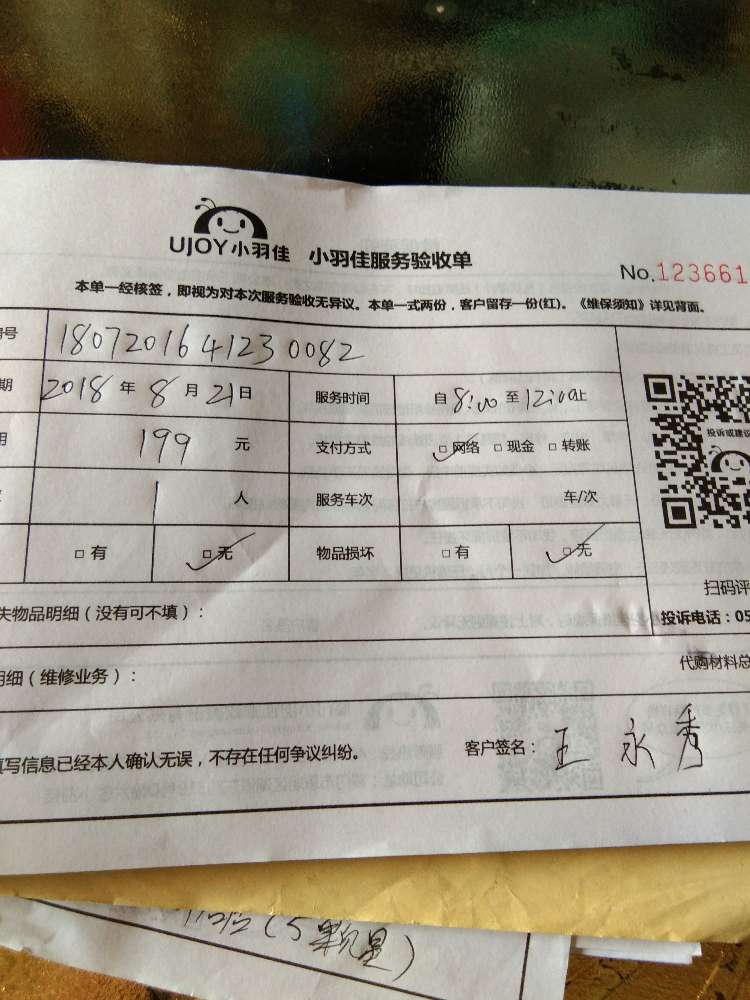 UJOY小羽佳 小羽佳服务验收单
No.123661
本单一经核签，即视为对本次服务验收无异议。本单一式两份，客户留存一份(红)。《维保须知》详见背面。
号 180720164123 0082
期 2018 年 8 月 21 日 服务时间 自 8:00 至 12:00止
199 元 支付方式 □网络 □现金 □转账
投诉或建议
1 人 服务车次 车/次
□有 □无 物品损坏 □有 □无
扫码评
失物品明细（没有可不填）：
投诉电话：05
代购材料总
明细（维修业务）：
填写信息已经本人确认无误，不存在任何争议纠纷。 客户签名： 王永秀
(5颗星)